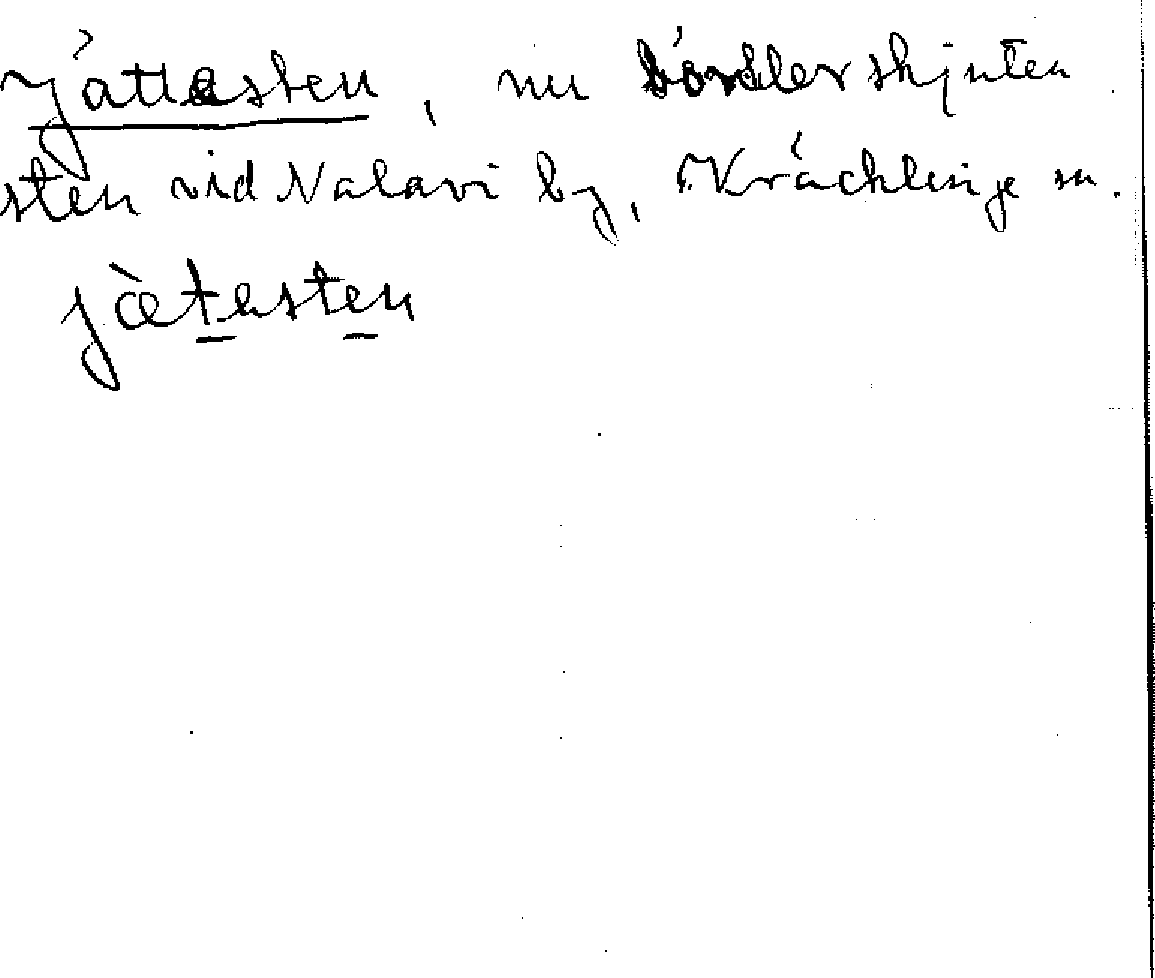 Jättasten, nu sönderskjuten
sten vid Nalavi by, Kräcklinge sn.
jètasten